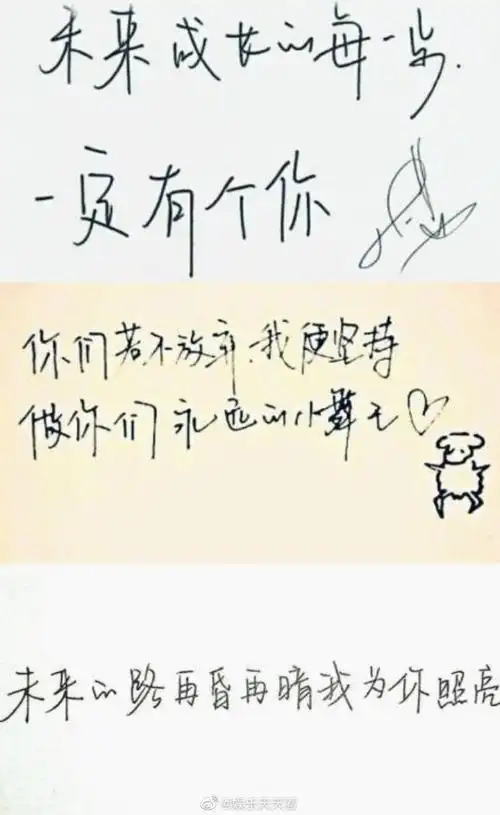 未来成长的每一步.
一定有个你
你们若不放弃,我便坚持
做你们永远的小舞王
未来的路再昏再暗我为你照亮
@娱乐天天看